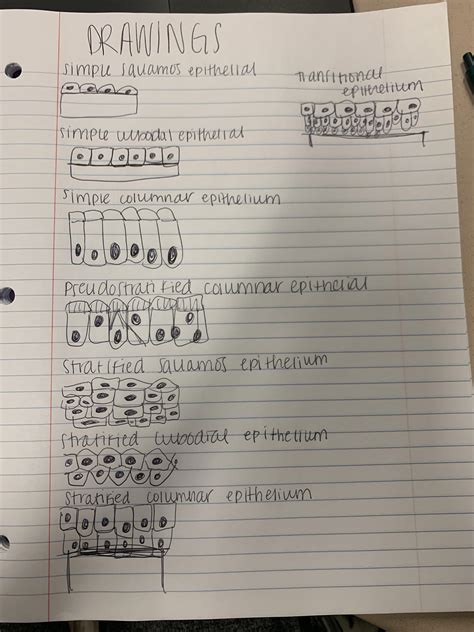 DRAWINGS
simple squamos epithelial
Transitional
epithelium
simple cubodal epithelial
simple columnar epithelium
Pseudostratified columnar epithelial
stratified squamos epithelium
stratified cubodial epithelium
stratified columnar epithelium